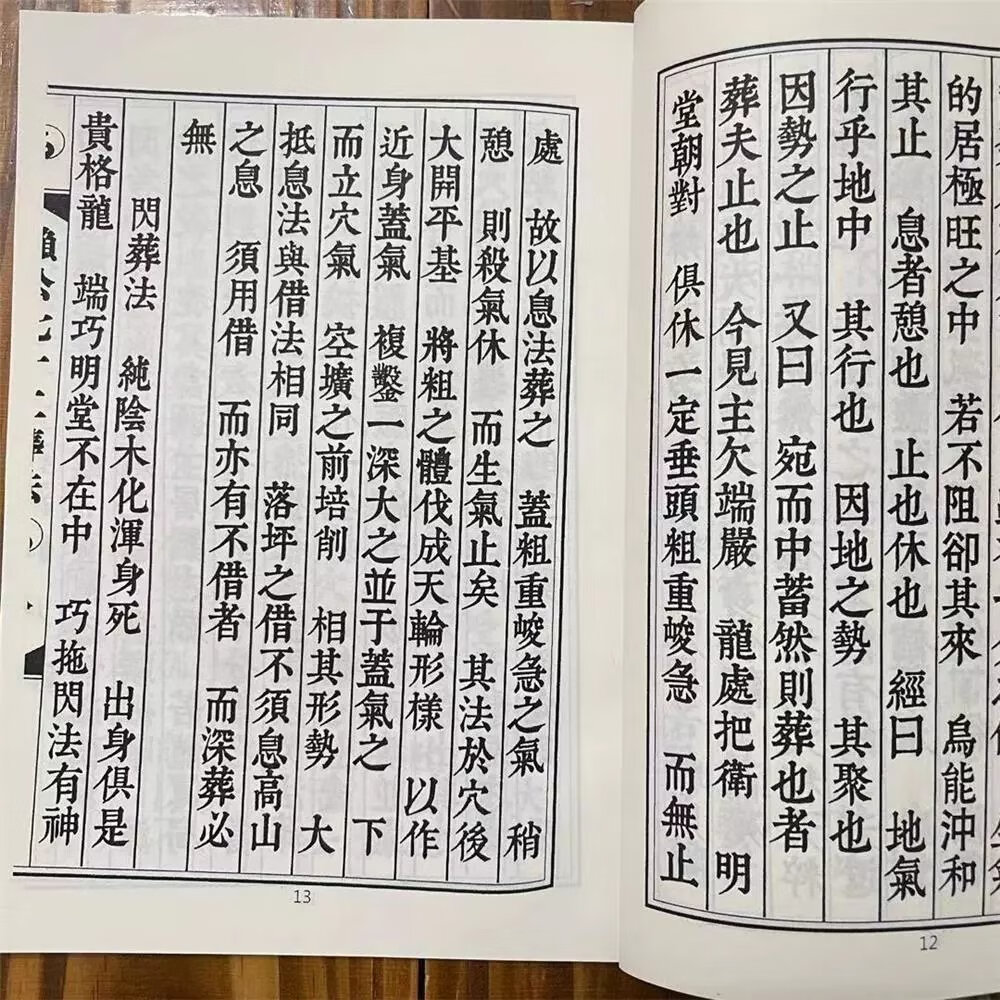 的居極旺之中 若不阻卻其來 烏能沖和
其止 息者憩也 止也休也 經曰 地氣
行乎地中 其行也 因地之勢 其聚也
因勢之止 又曰 宛而中蓄然則葬也者
葬夫止也 今見主欠端嚴 龍處把衛 明
堂朝對 俱休一定垂頭粗重峻急 而無止
12
處 故以息法葬之 蓋粗重峻急之氣 稍
憩 則殺氣休 而生氣止矣 其法於穴後
大開平基 將粗之體伐成天輪形樣 以作
近身蓋氣 複鑿一深大之並于蓋氣之 下
而立穴氣 空壙之前培削 相其形勢 大
抵息法與借法相同 落坪之借不須息高山
之息 須用借 而亦有不借者 而深葬必
無
閃葬法 純陰木化渾身死 出身俱是
貴格龍 端巧明堂不在中 巧拖閃法有神
13